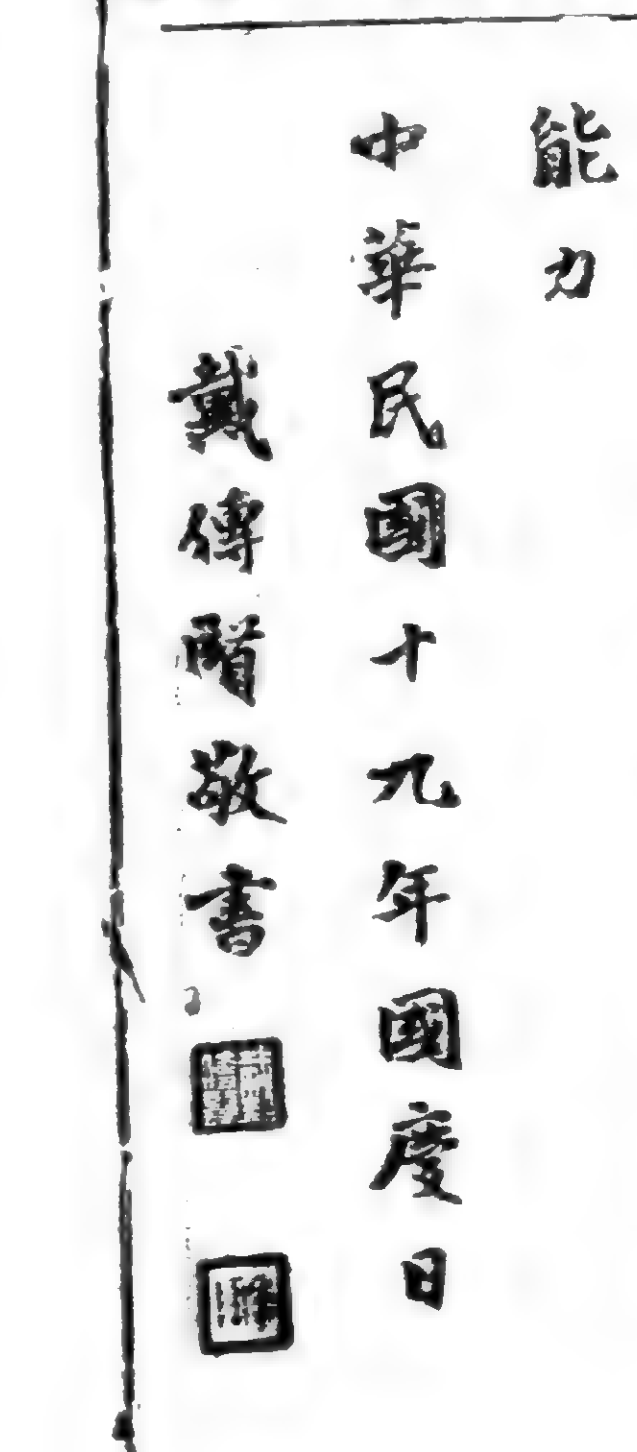 能力
中華民國十九年國慶日
戴傳賢敬書